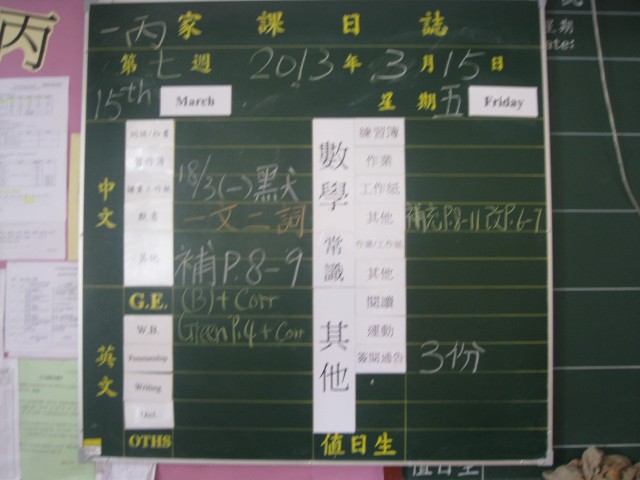 丙
一丙家課日誌
第七週 2013年3月15日
15th March 星期五 Friday
中文
18/3(一)默
一文二詞
其他 補P.8-9
英文
G.E. (B)+ Corr
W.B. Green P.4 + Corr
Penmanship
Writing
Dict.
OTHS
數學
練習簿
作業
工作紙
其他 補充P.8-11 改P.6-7
常識
作業/工作紙
其他
其他
閱讀
運動
簽閱通告 3份
值日生
星期
值日生